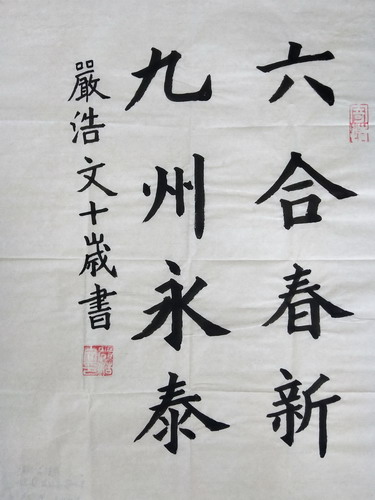 六合春新
九州永泰
嚴浩文十歲書